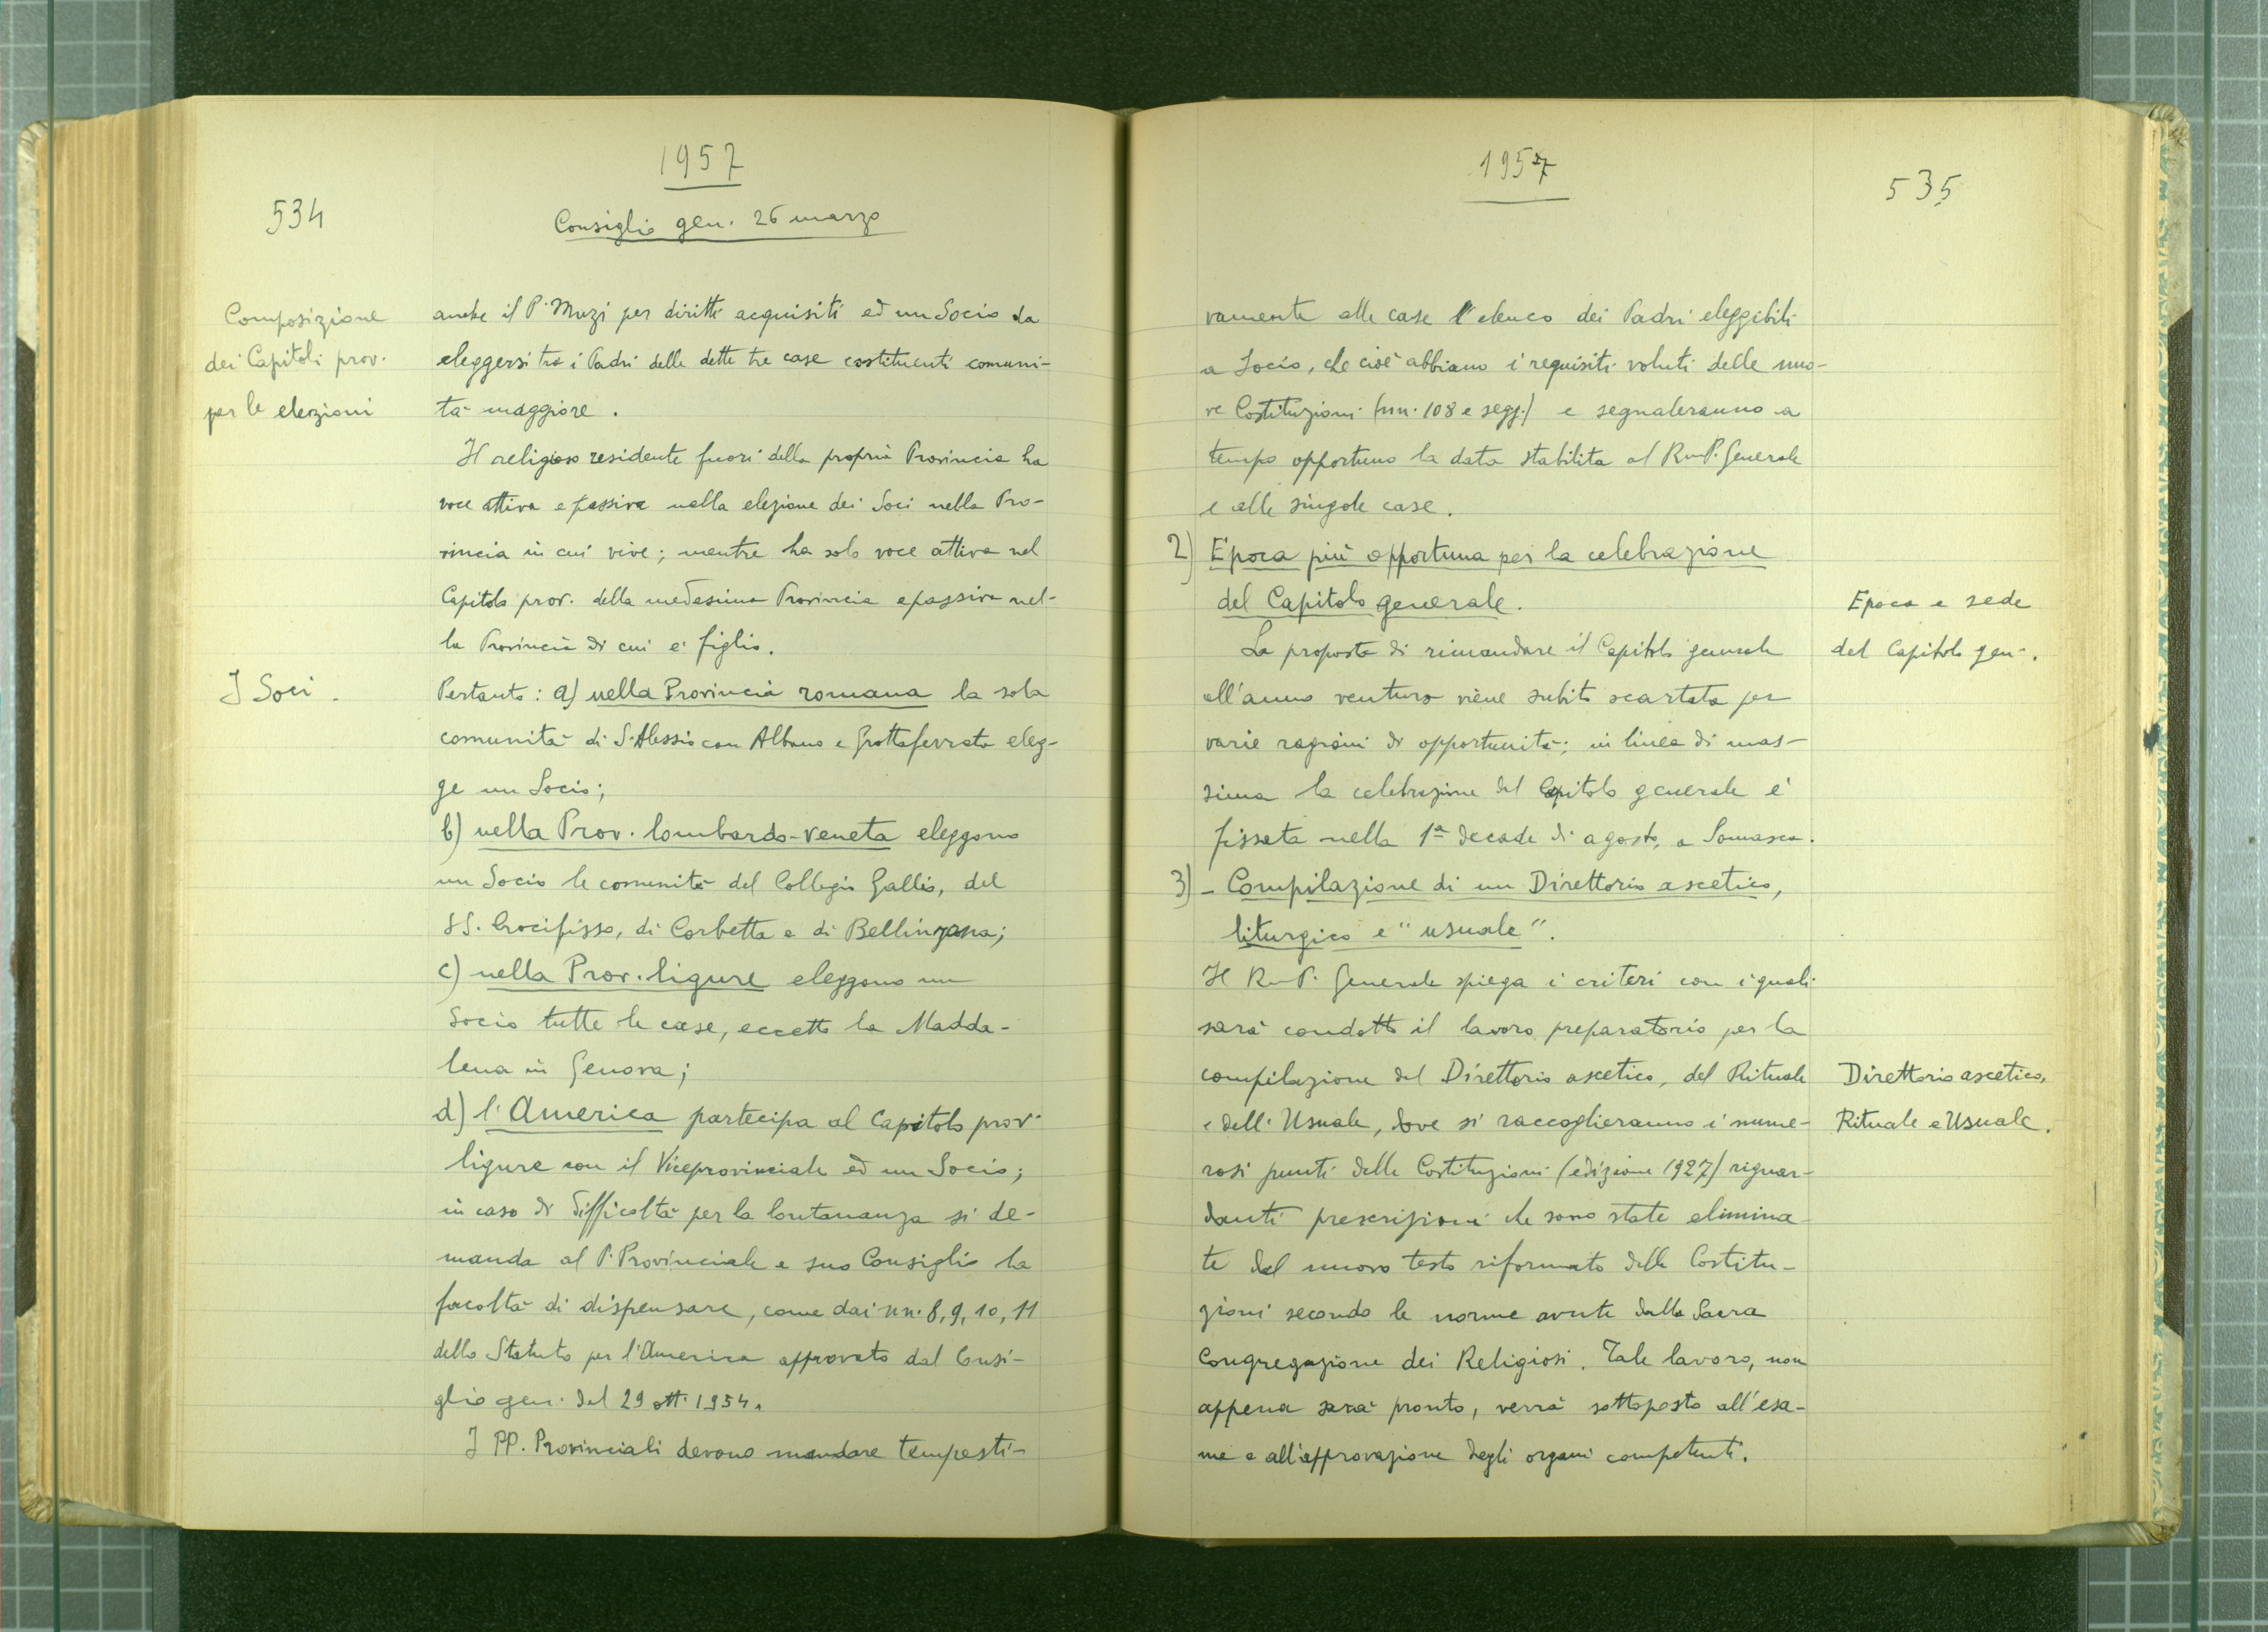 1957
534
Consiglio gen. 26 marzo
Composizione
dei Capitoli prov.
per le elezioni
anche il P. Muzi per diritti acquisiti ed un Socio da
eleggersi tra i Padri delle dette tre case costituenti comuni-
tà maggiore.
Il religioso residente fuori della propria Provincia ha
voce attiva e passiva nella elezione dei Soci nella Pro-
vincia in cui vive; mentre ha solo voce attiva nel
Capitolo prov. della medesima Provincia e passiva nel-
la Provincia di cui è figlio.
I Soci.
Pertanto: a) nella Provincia romana la sola
comunità di S. Alessio con Albano e Grottaferrata eleg-
ge un Socio;
b) nella Prov. lombardo-veneta eleggono
un Socio le comunità del Collegio Gallio, del
SS. Crocifisso, di Corbetta e di Bellinzona;
c) nella Prov. ligure eleggono un
Socio tutte le case, eccetto la Madda-
lena in Genova;
d) l'America partecipa al Capitolo prov.
ligure con il Viceprovinciale ed un Socio;
in caso di difficoltà per la lontananza si de-
manda al P. Provinciale e suo Consiglio la
facoltà di dispensare, come dai nn. 8, 9, 10, 11
dello Statuto per l'America approvato dal Consi-
glio gen. del 29 ott. 1954.
I PP. Provinciali devono mandare tempesti-
1957
535
vamente alle case l'elenco dei Padri eleggibili
a Socio, che cioè abbiano i requisiti voluti delle nuo-
ve Costituzioni (nn. 108 e segg.) e segnaleranno a
tempo opportuno la data stabilita al Rm P. Generale
e alle singole case.
2) Epoca più opportuna per la celebrazione
del Capitolo generale.
Epoca e sede
del Capitolo gen.
La proposta di rimandare il Capitolo generale
all'anno venturo viene subito scartata per
varie ragioni di opportunità; in linea di mas-
sima la celebrazione del Capitolo generale è
fissata nella 1ª decade di agosto, a Somasca.
3) - Compilazione di un Direttorio ascetico,
liturgico e "usuale".
Il Rm P. Generale spiega i criteri con i quali
sarà condotto il lavoro preparatorio per la
compilazione del Direttorio ascetico, del Rituale
e dell'Usuale, dove si raccoglieranno i nume-
Direttorio ascetico,
Rituale e Usuale.
rosi punti delle Costituzioni (edizione 1927) riguar-
danti prescrizioni che sono state elimina-
te dal nuovo testo riformato delle Costitu-
zioni secondo le norme avute dalla Sacra
Congregazione dei Religiosi. Tale lavoro, non
appena sarà pronto, verrà sottoposto all'esa-
me e all'approvazione degli organi competenti.